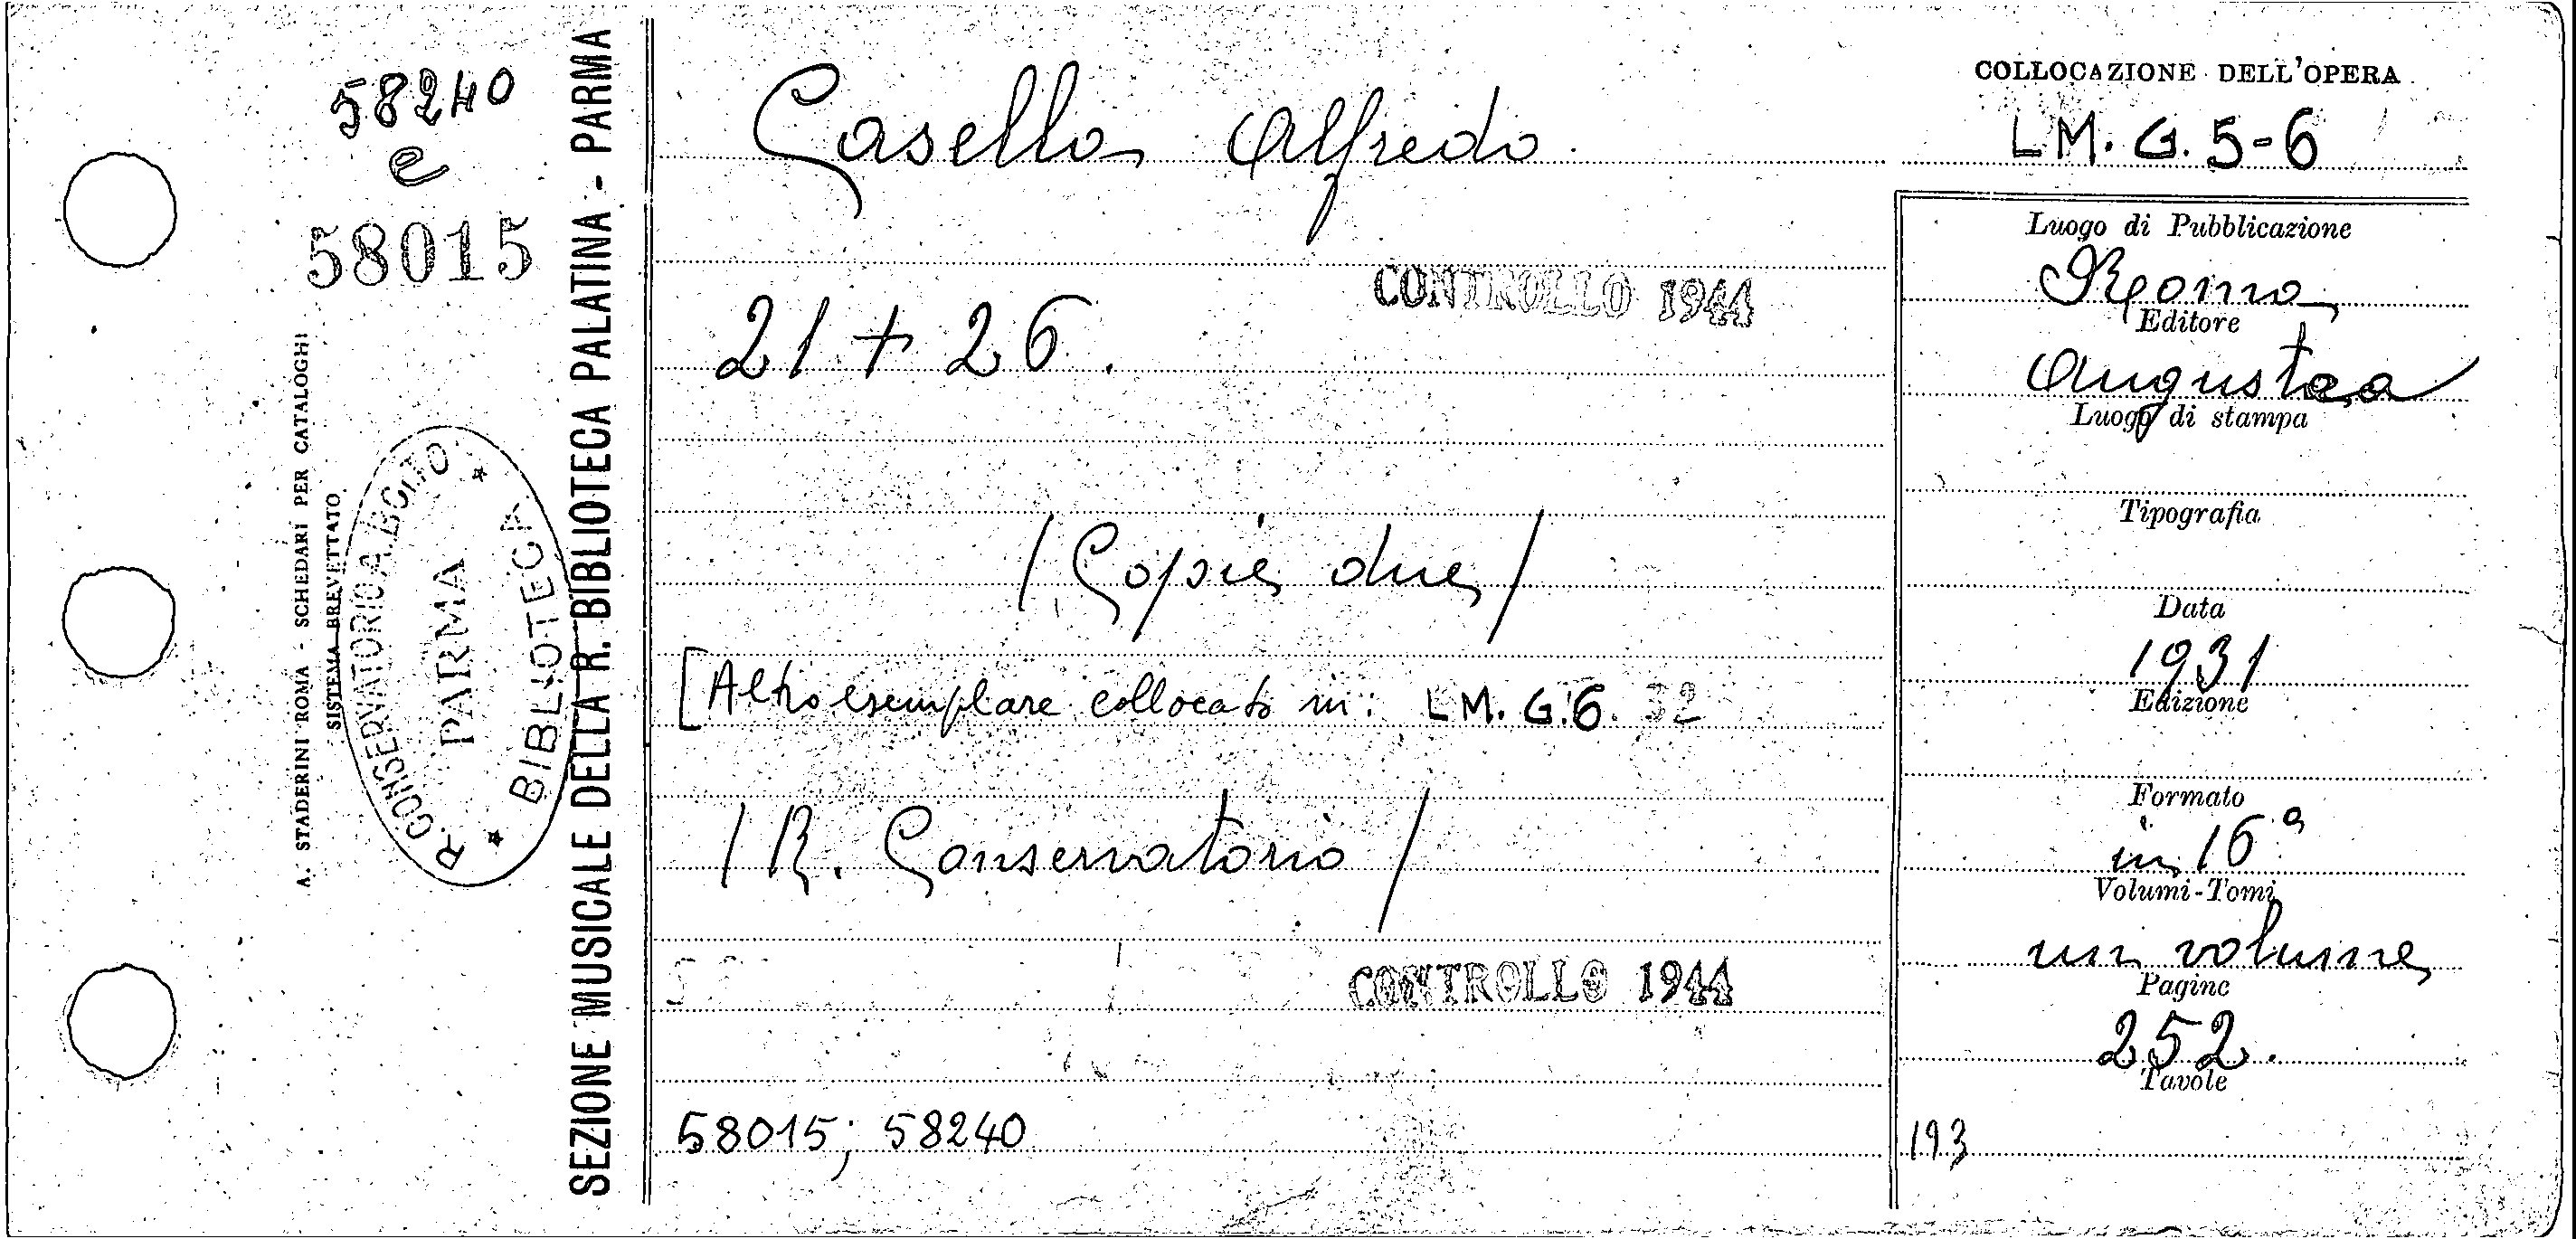 58240
e
58015
A. STADERINI ROMA - SCHEDARI PER CATALOGHI
SISTEMA BREVETTATO
R. CONSERVATORIO A. BOITO
PARMA
* BIBLIOTECA *
SEZIONE MUSICALE DELLA R. BIBLIOTECA PALATINA - PARMA
Casella Alfredo
CONTROLLO 1944
21 + 26.
/ Copie due /
[Altro esemplare collocato in: LM. G. 6. 32
/ R. Conservatorio /
CONTROLLO 1944
58015; 58240
COLLOCAZIONE DELL'OPERA
LM. G. 5-6
Luogo di Pubblicazione
Roma
Editore
Augustea
Luogo di stampa
Tipografia
Data
1931
Edizione
Formato
in 16°
Volumi-Tomi
un volume
Pagine
252.
Tavole
193